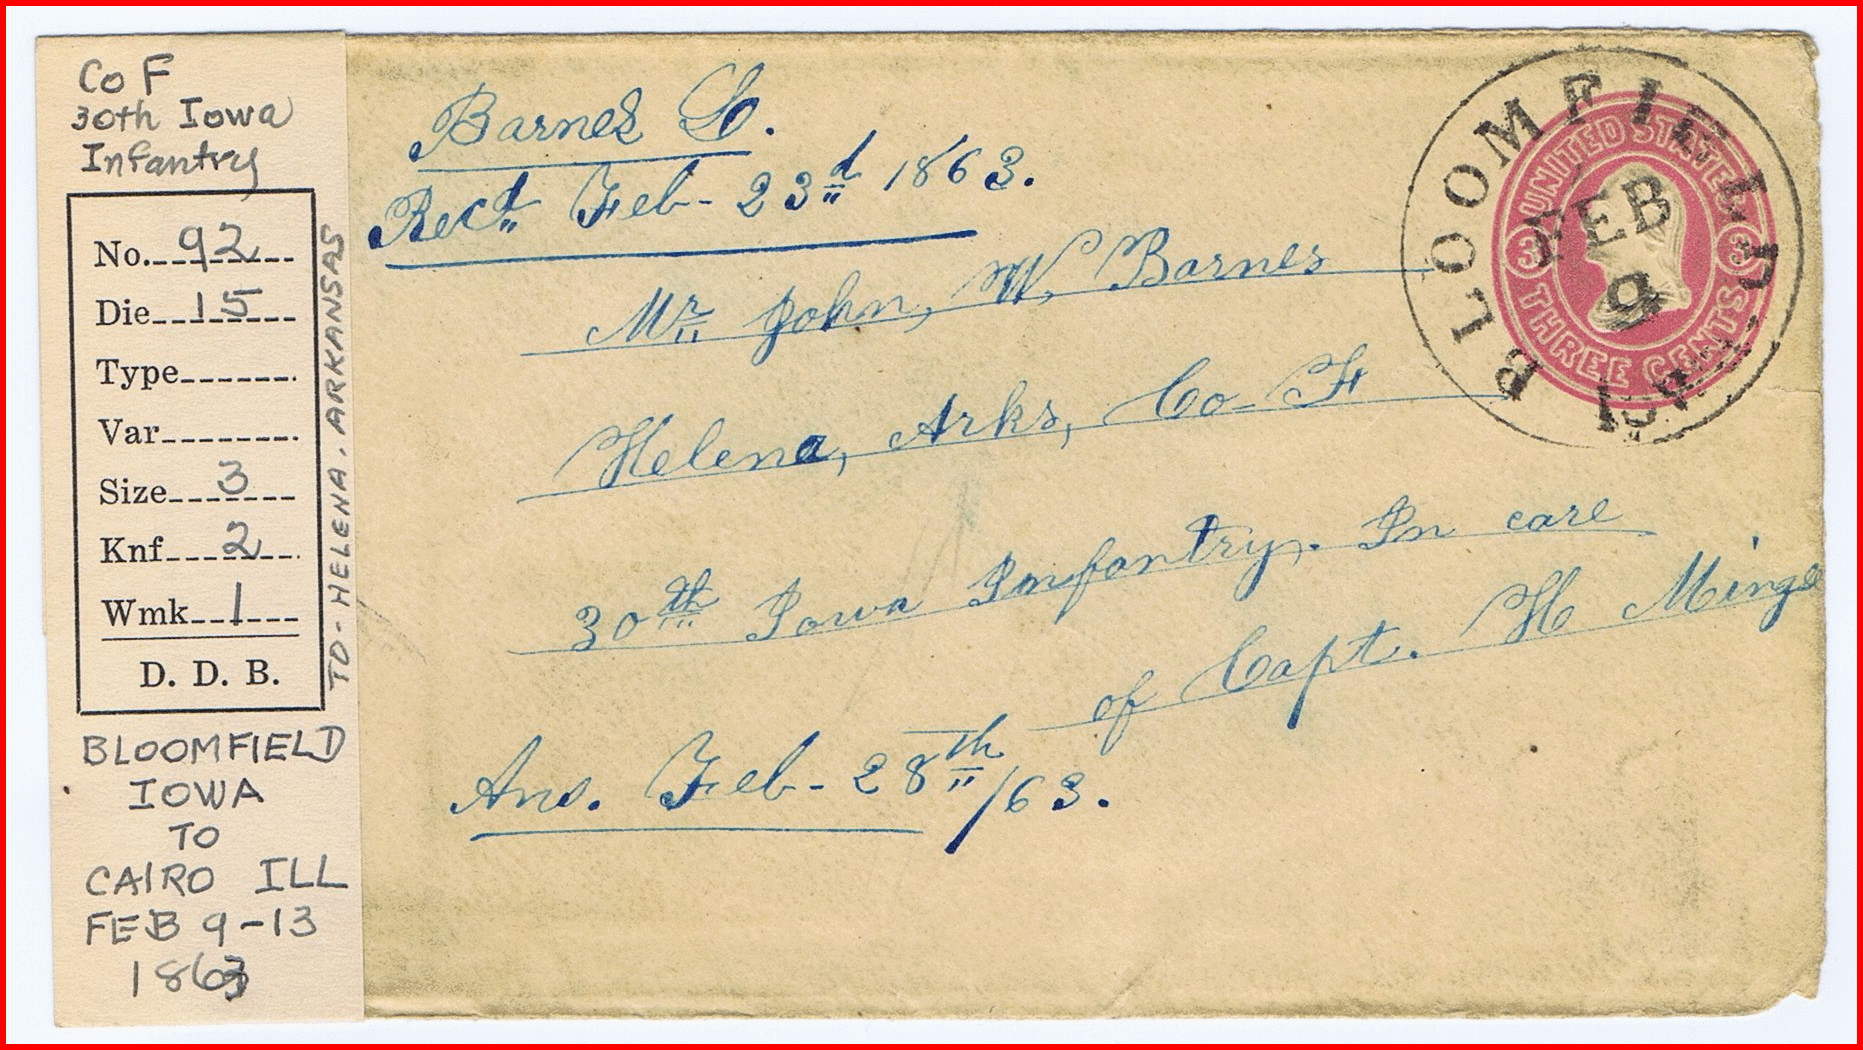 Co F
30th Iowa
Infantry
No. 92
Die 15
Type
Var
Size 3
Knf 2
Wmk 1
D. D. B.
TO - HELENA, ARKANSAS
BLOOMFIELD
IOWA
TO
CAIRO ILL
FEB 9-13
1863
Barnes
Recd. Feb- 23d 1863.
Mr. John, W. Barnes
Helena, Arks, Co- F
30th Iowa Infantry. In care
of Capt. H Minge
Ans. Feb- 28th/63.
BLOOMFIELD
FEB
9
UNITED STATES
3 3
THREE CENTS